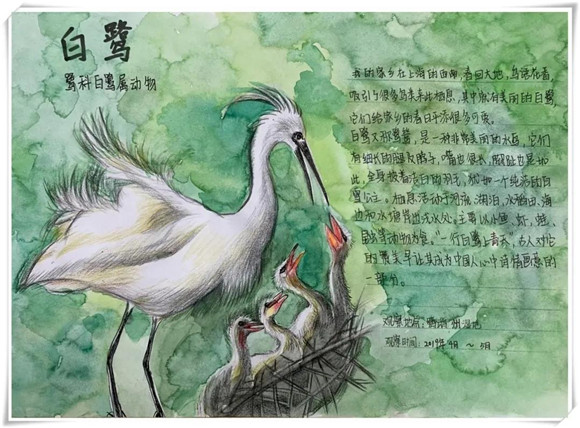 白鹭
鹭科白鹭属动物
我的家乡在上海的西南，春回大地，鸟语花香，
吸引了很多鸟类来此栖息，其中就有美丽的白鹭，
它们给家乡的春日平添很多可爱。
白鹭又称鹭鸶，是一种非常美丽的水鸟，它们
有细长的腿及脖子，嘴也很长，脚趾也是如
此，全身披着洁白的羽毛，犹如一个纯洁的白
雪公主。栖息活动于河流、湖泊、水稻田、海
边和水塘
主要以小鱼、虾、蛙、
昆虫等动物为食。"一行白鹭上青天，古人对它
的赞美早让其成为中国人心中诗情画意的
一部分。
观察地点：
观察时间：2019年4月～5月